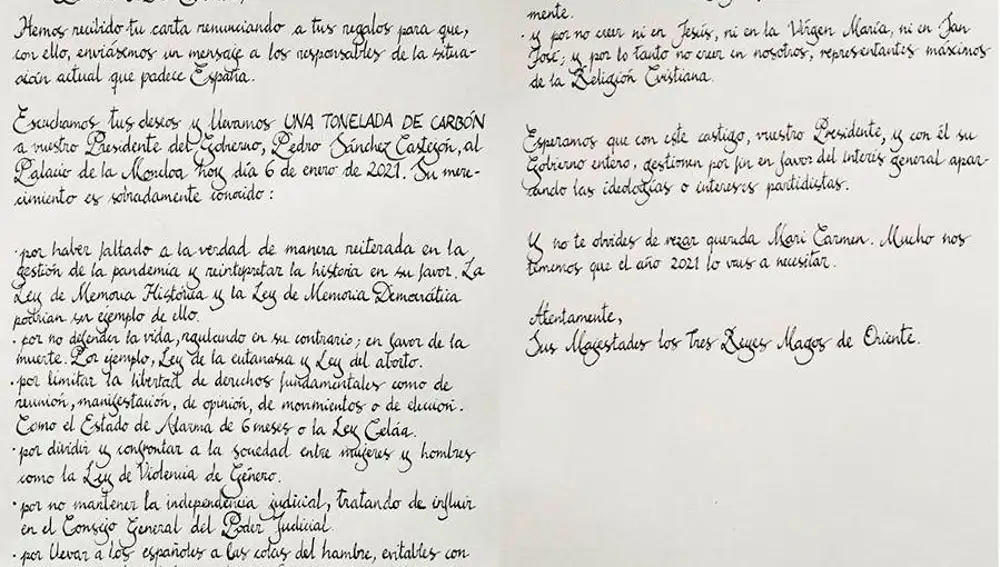 Hemos recibido tu carta renunciando a tus regalos para que,
con ello, enviásemos un mensaje a los responsables de la situa-
ción actual que padece España.
Escuchamos tus deseos y llevamos UNA TONELADA DE CARBÓN
a vuestro Presidente del Gobierno, Pedro Sánchez Castejón, al
Palacio de la Moncloa hoy día 6 de enero de 2021. Su mere-
cimiento es sobradamente conocido:
· por haber faltado a la verdad de manera reiterada en la
gestión de la pandemia y reinterpretar la historia en su favor. La
Ley de Memoria Histórica y la Ley de Memoria Democrática
podrían ser ejemplo de ello.
· por no defender la vida, regulando en su contrario; en favor de la
muerte. Por ejemplo, Ley de la eutanasia y Ley del aborto.
· por limitar la libertad de derechos fundamentales como de
reunión, manifestación, de opinión, de movimientos o de elección.
Como el Estado de Alarma de 6 meses o la Ley Celáa.
· por dividir y confrontar a la sociedad entre mujeres y hombres
como la Ley de Violencia de Género.
· por no mantener la independencia judicial, tratando de influir
en el Consejo General del Poder Judicial.
· por llevar a los españoles a las colas del hambre, evitables con
mente.
· y por no creer ni en Jesús, ni en la Virgen María, ni en San
José; y por lo tanto no creer en nosotros, representantes máximos
de la Religión Cristiana.
Esperamos que con este castigo, vuestro Presidente, y con él su
Gobierno entero, gestionen por fin en favor del interés general apar-
tando las ideologías o intereses partidistas.
Y no te olvides de rezar querida Mari Carmen. Mucho nos
tememos que el año 2021 lo vais a necesitar.
Atentamente,
Sus Majestades los Tres Reyes Magos de Oriente.